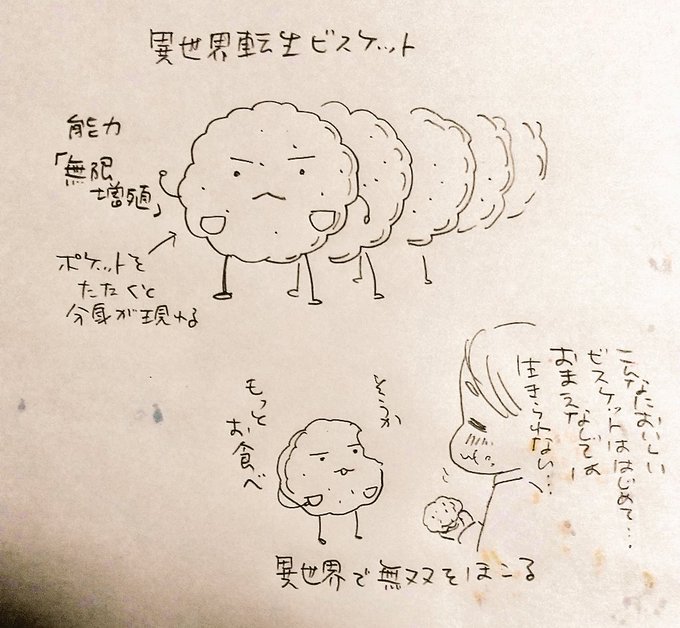 異世界転生ビスケット
能力
「無限
増殖」
ポケットを
たたくと
分身が現れる
こんなにおいしい
ビスケットははじめて…
おまえなしでは
生きられない…
そうか
もっと
お食べ
異世界で無双をほこる